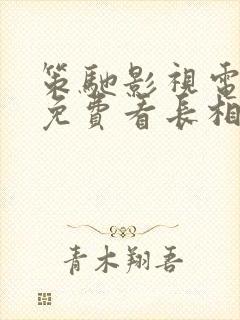 策馳影視電
免費看長相
青木翔吾